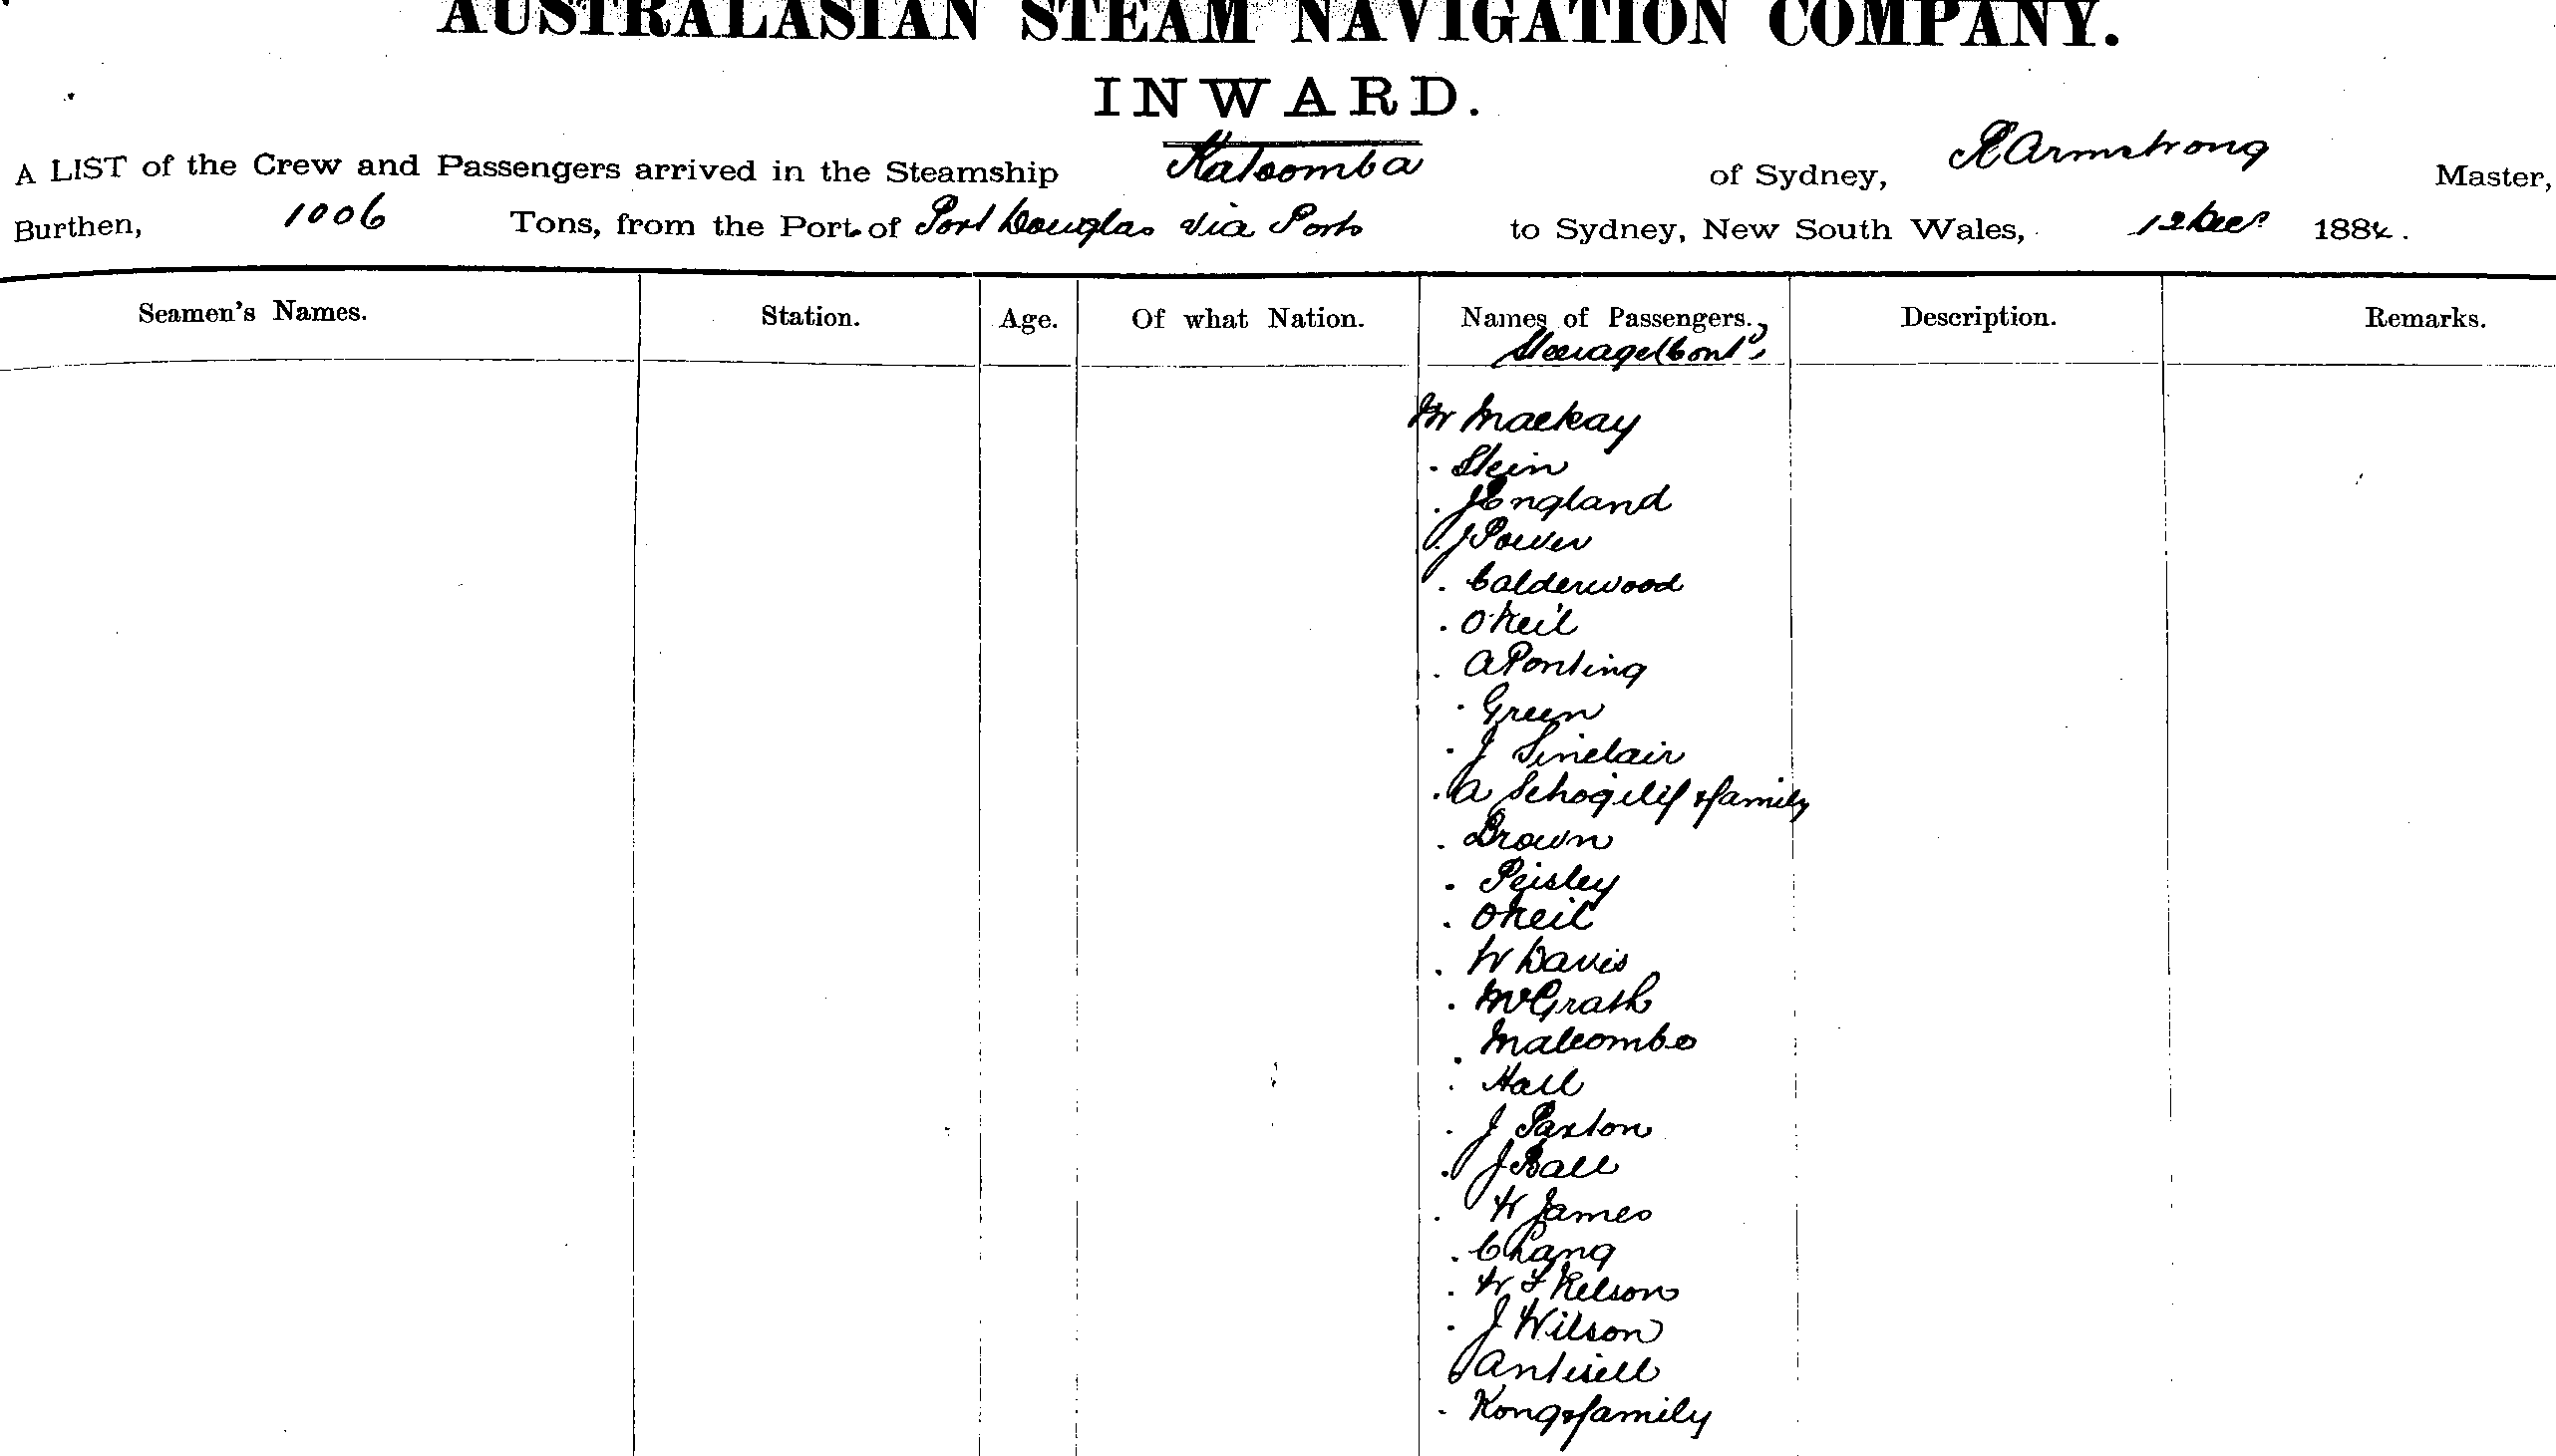 AUSTRALASIAN STEAM NAVIGATION COMPANY.
INWARD.
A LIST of the Crew and Passengers arrived in the Steamship Katoomba of Sydney, R Armstrong Master,
Burthen, 1006 Tons, from the Port of Port Douglas via Ports to Sydney, New South Wales, 12 Decr 1884.
Seamen's Names. Station. Age. Of what Nation. Names of Passengers. Description. Remarks.
Steerage (Contd)
Mr Mackay
. Stein
. J England
. J Power
. Calderwood
. O'Neil
. A Ponting
. Green
. J Sinclair
. A & family
. Brown
. Peisley
. ONeil
. W Davis
. McGrath
. Malcombe
. Hall
. J Paxton
. J Ball
. W James
. Chang
. W F Nelson
. J Wilson
Antisell
. Kong & family